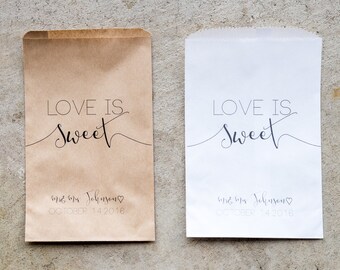 LOVE IS
Sweet
mr & mrs Johnson
OCTOBER 14 2016
LOVE IS
Sweet
mr & mrs Johnson
OCTOBER 14 2016